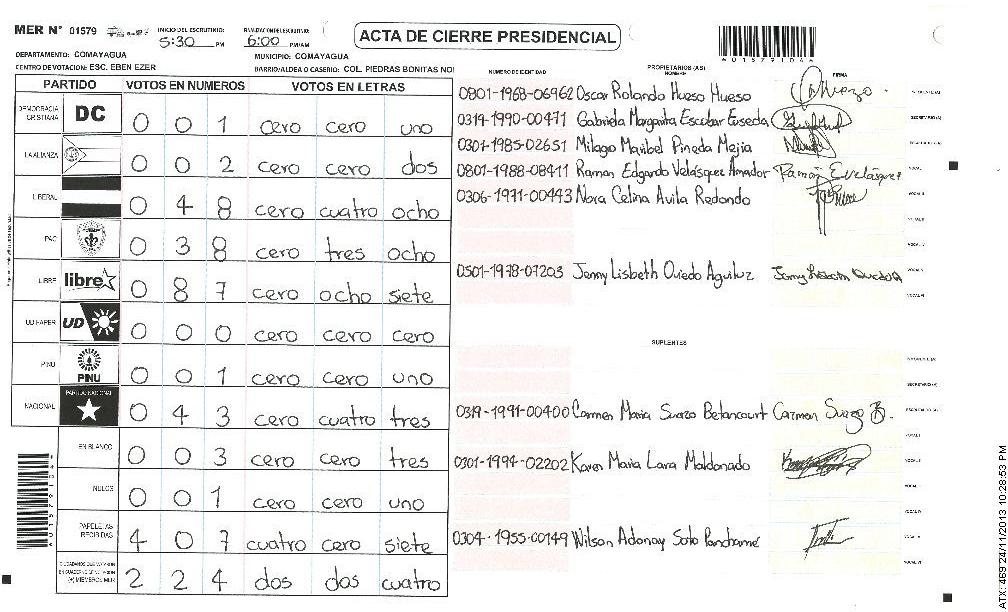 MER N° 01579 INICIO DEL ESCRUTINIO: 5:30 PM 6:00 PM/AM ACTA DE CIERRE PRESIDENCIAL
DEPARTAMENTO: COMAYAGUA MUNICIPIO: COMAYAGUA
CENTRO DE VOTACION: ESC. EBEN EZER BARRIO/ALDEA O CASERIO: COL. PIEDRAS BONITAS NO
PARTIDO VOTOS EN NUMEROS VOTOS EN LETRAS
DEMOCRACIA CRISTIANA DC 0 0 1 cero cero uno
LA ALIANZA 0 0 2 cero cero dos
LIBERAL 0 4 8 cero cuatro ocho
PAC 0 3 8 cero tres ocho
LIBRE libre 0 8 7 cero ocho siete
UD FAPER UD 0 0 0 cero cero cero
PINU PINU 0 0 1 cero cero uno
NACIONAL PARTIDO NACIONAL 0 4 3 cero cuatro tres
EN BLANCO 0 0 3 cero cero tres
NULOS 0 0 1 cero cero uno
PAPELETAS RECIBIDAS 4 0 7 cuatro cero siete
2 2 4 dos dos cuatro
NUMERO DE IDENTIDAD PROPIETARIOS (AS) NOMBRE FIRMA
0801-1968-06962 Oscar Rolando Hueso Hueso
0319-1990-00471 Gabriela Margarita Escobar Euseda
0301-1985-02651 Milago Maribel Pineda Mejia
0801-1988-08411 Ramon Edgardo Velásquez Amador Ramón E Velásquez
0306-1971-00443 Nora Celina Avila Redondo
0501-1978-07203 Jenny Lisbeth Oviedo Aguiluz
SUPLENTES
0319-1991-00400 Carmen Maria Suazo Betancourt Carmen Suazo B.
0301-1994-02202 Karen Maria Lara Maldonado
0304-1955-00149 Wilson Adonay Soto
ATX: 469:24/11/2013 10:28:53 PM